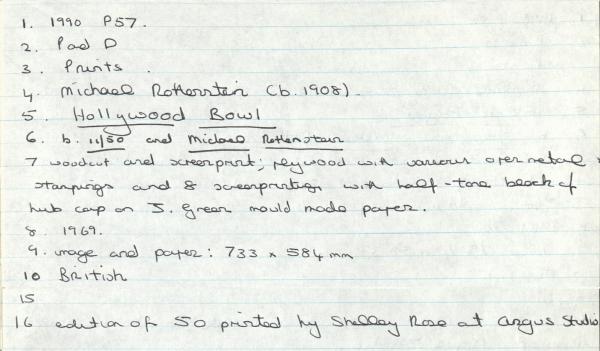 1. 1990 P57.
2. Pad D
3. Prints.
4. Michael Rothenstein (b. 1908).
5. Hollywood Bowl
6. b. 11/50 and Michael Rothenstein
7 woodcut and screenprint; plywood with various
stampings and 8 screenprintings with half-tone block of
hub cap on J. Green mould made paper.
8. 1969.
9. image and paper: 733 x 584 mm
10 British
15
16 edition of 50 printed by Shelley Rose at Argus Studio